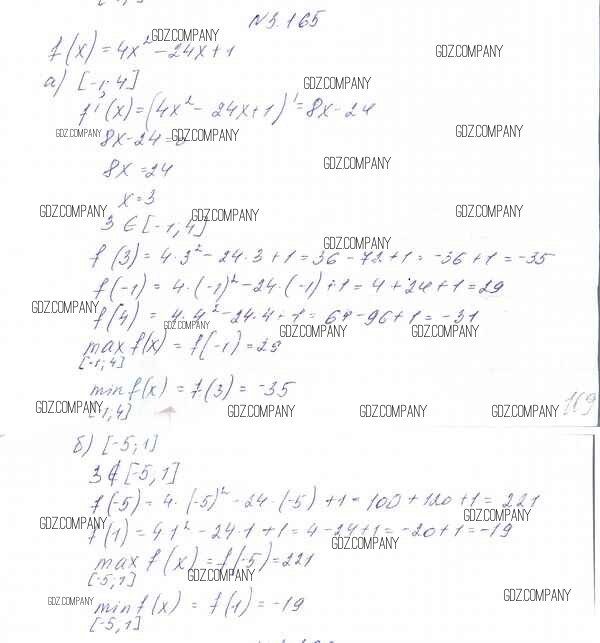 N 3.165
GDZ.COMPANY
f(x) = 4x² - 24x + 1
GDZ.COMPANY
а) [-1; 4]
GDZ.COMPANY
f'(x) = (4x² - 24x + 1)' = 8x - 24
GDZ.COMPANY
GDZ.COMPANY
GDZ.COMPANY
8x - 24 = 0
GDZ.COMPANY
8x = 24
x = 3
GDZ.COMPANY
GDZ.COMPANY
GDZ.COMPANY
3 ∈ [-1; 4]
GDZ.COMPANY
f(3) = 4·3² - 24·3 + 1 = 36 - 72 + 1 = -36 + 1 = -35
f(-1) = 4·(-1)² - 24·(-1) + 1 = 4 + 24 + 1 = 29
GDZ.COMPANY
f(4) = 4·4² - 24·4 + 1 = 64 - 96 + 1 = -31
GDZ.COMPANY
GDZ.COMPANY
GDZ.COMPANY
max f(x) = f(-1) = 29
[-1; 4]
min f(x) = f(3) = -35
[-1; 4]
GDZ.COMPANY
GDZ.COMPANY
GDZ.COMPANY
GDZ.COMPANY
169
б) [-5; 1]
3 ∉ [-5; 1]
f(-5) = 4·(-5)² - 24·(-5) + 1 = 100 + 120 + 1 = 221
GDZ.COMPANY
GDZ.COMPANY
f(1) = 4·1² - 24·1 + 1 = 4 - 24 + 1 = -20 + 1 = -19
GDZ.COMPANY
max f(x) = f(-5) = 221
[-5; 1]
GDZ.COMPANY
GDZ.COMPANY
GDZ.COMPANY
min f(x) = f(1) = -19
[-5; 1]